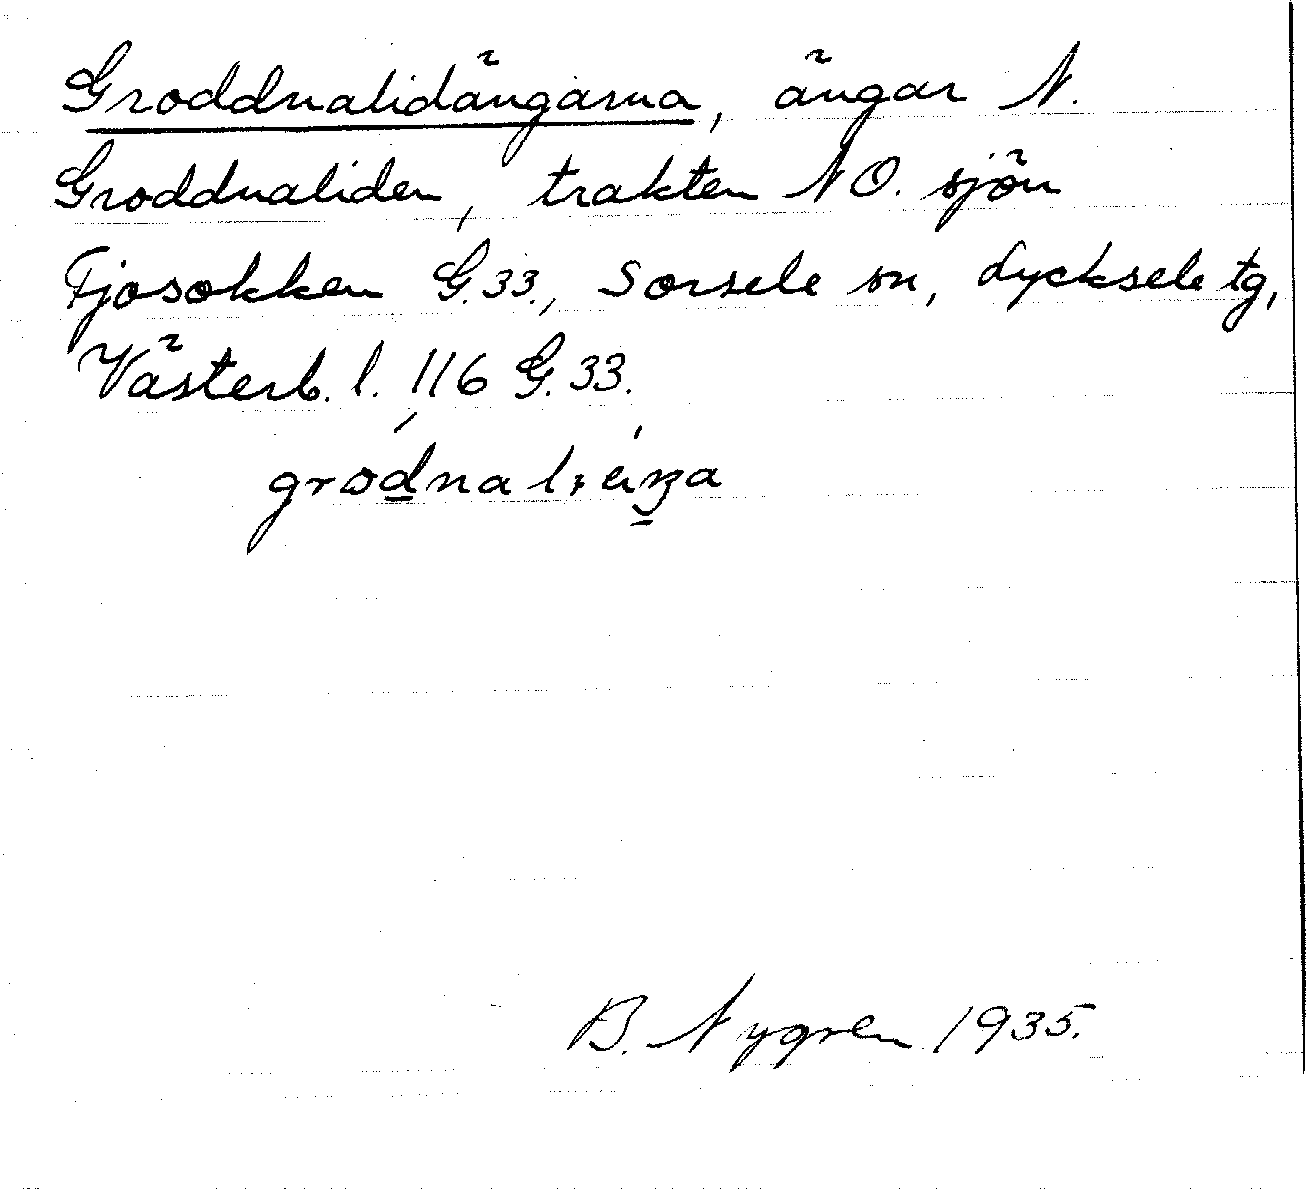 Groddnalidängarna, ängar N.
Groddnaliden, trakten NO. sjön
Fjosokken G.33., Sorsele sn, Lycksele tg,
Västerb. l. 116 G.33.
B. Nygren 1935.